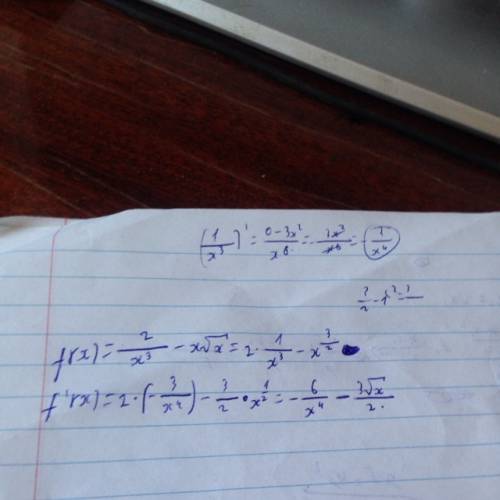 (1/x³)' = (0-3x²)/x⁶ = -3x²/x⁶ = 3/x⁴
3/2 - 1 =
f(x) = 2/x³ - x√x = 2·1/x³ - x^(3/2)
f'(x) = 2·(-3/x⁴) - 3/2 · x^(1/2) = -6/x⁴ - 3√x/2.